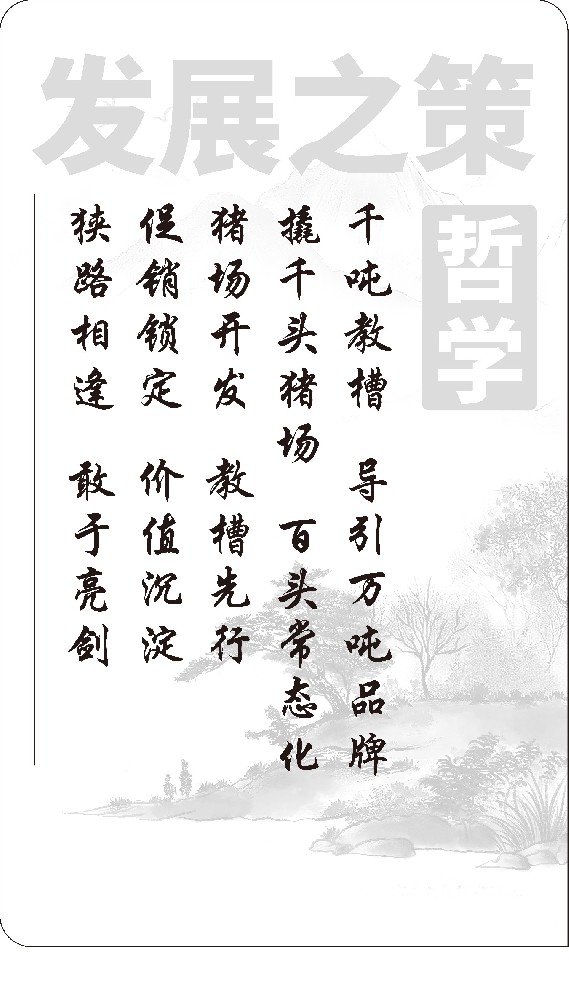 发展之策
哲学
千吨教槽 导引万吨品牌
撬千头猪场 百头常态化
猪场开发 教槽先行
促销锁定 价值沉淀
狭路相逢 敢于亮剑